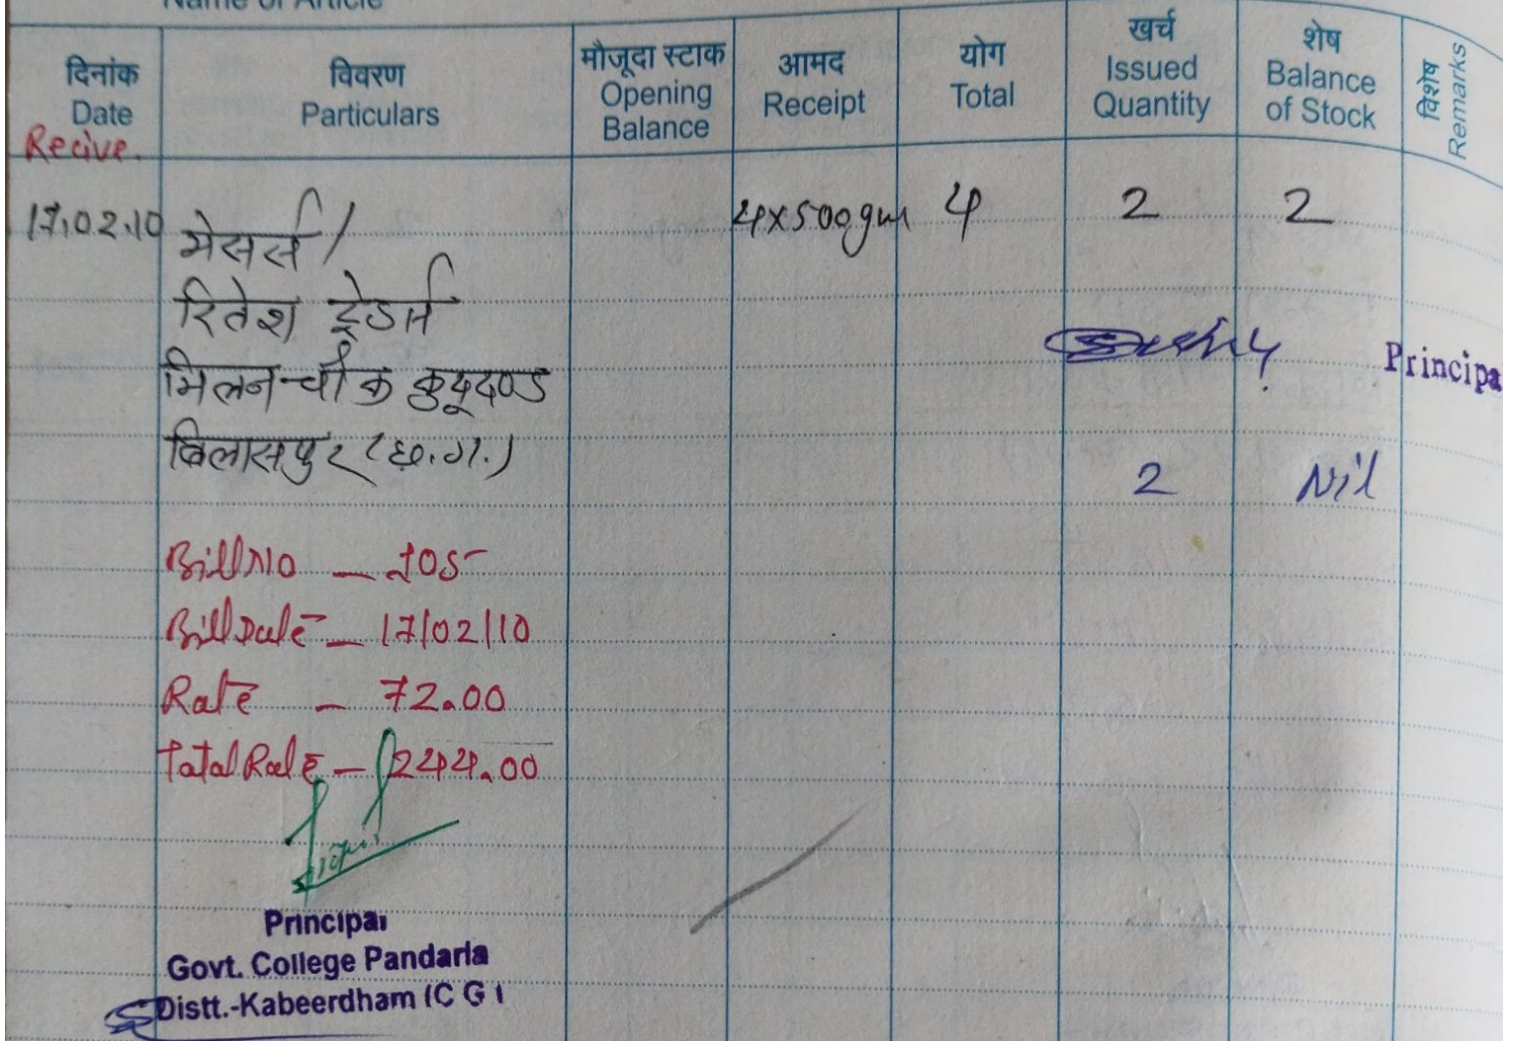 Name of Article
दिनांक
Date
विवरण
Particulars
मौजूदा स्टाक
Opening
Balance
आमद
Receipt
योग
Total
खर्च
Issued
Quantity
शेष
Balance
of Stock
विशेष
Remarks
Recive.
17.02.10 मेसर्स / 4x500gm 4 2 2
रितेश ट्रेडर्स
मिलन चौक कुदूदण्ड
Principa
बिलासपुर (छ.ग.)
2 Nil
Bill No — 105
Bill Date — 17/02/10
Rate — 72.00
Total Rate — 244.00
Principal
Govt. College Pandaria
Distt.-Kabeerdham (C G )